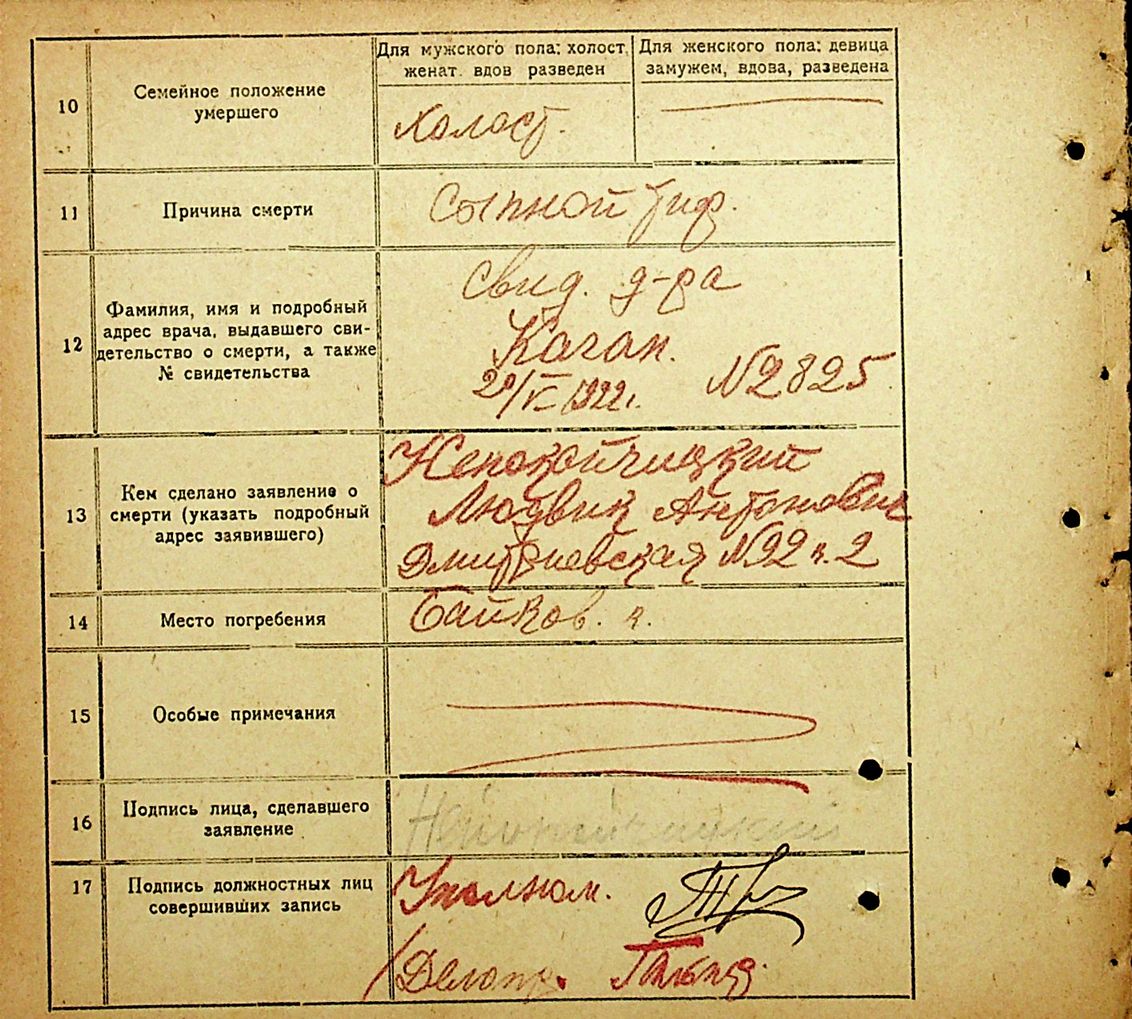 Для мужского пола: холост, женат. вдов разведен
Для женского пола: девица замужем, вдова, разведена
10 Семейное положение умершего
Холост.
11 Причина смерти
Сыпной тиф.
12 Фамилия, имя и подробный адрес врача, выдавшего сви-
детельство о смерти, а также № свидетельства
свид. д-ра
Каган.
20/V 1922 г. № 2825
13 Кем сделано заявление о смерти (указать подробный адрес заявившего)
Непокойчицкий
Людвик Антонович
Дмитриевская № 92 к. 2
14 Место погребения
Байков. к.
15 Особые примечания
16 Подпись лица, сделавшего заявление
Непокойчицкий
17 Подпись должностных лиц совершивших запись
Уполном.
Делопр.